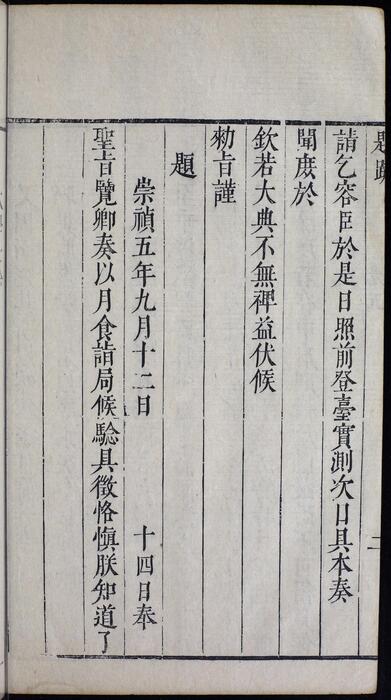 請乞容臣於是日照前登臺實測次日具本奏
聞庻於
欽若大典不無裨益伏候
勑旨謹
題
崇禎五年九月十二日 十四日奉
聖旨覽卿奏以月食詣局候驗具徵恪愼朕知道了
二